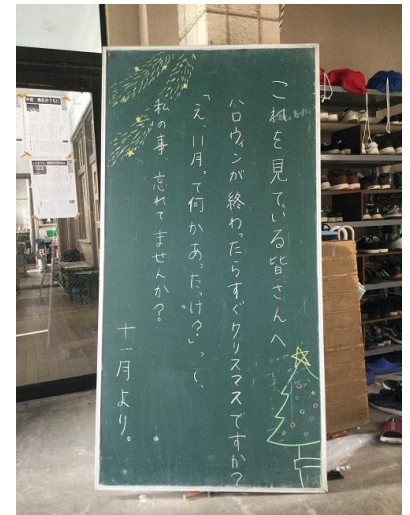 これを見ている皆さんへ
ハロウィンが終わったらすぐクリスマスですか?
「え、11月って何かあったっけ?」って、
私の事、忘れてませんか?
十一月より。